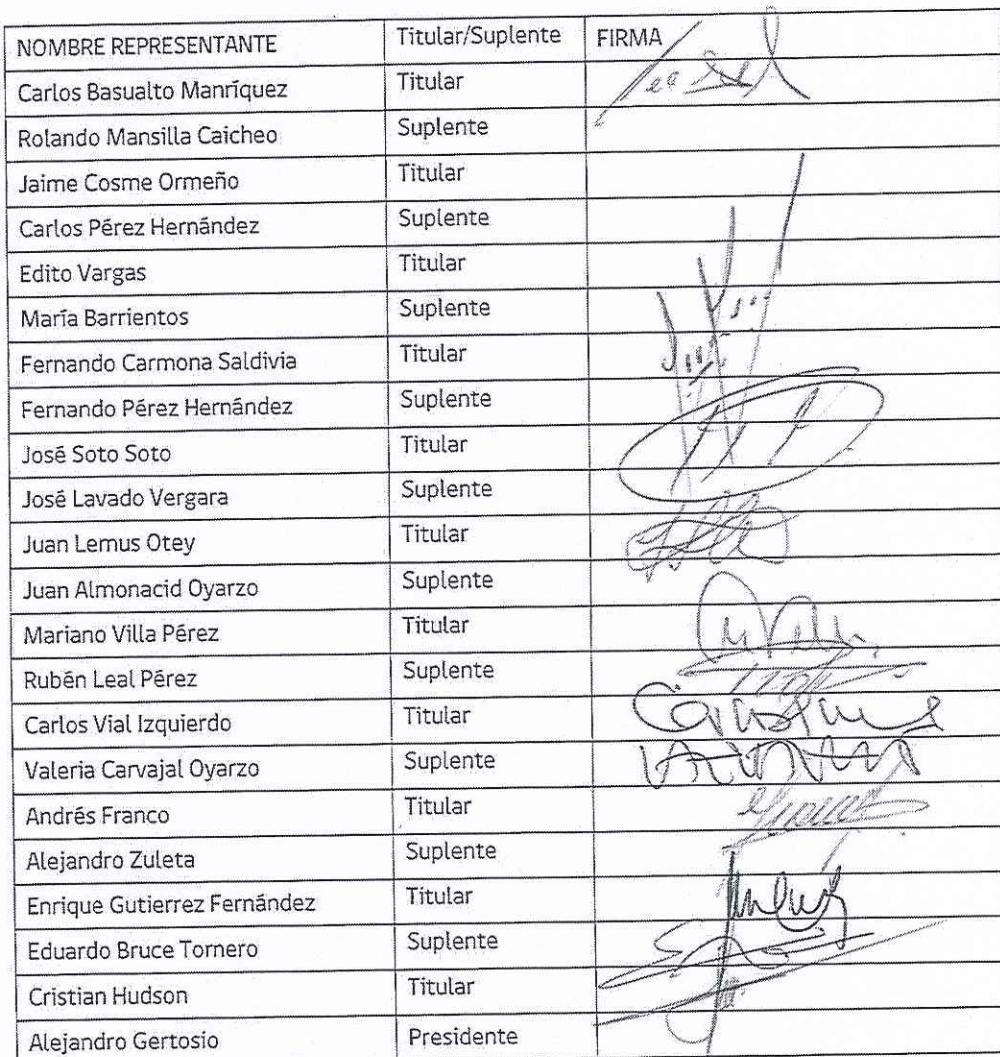 NOMBRE REPRESENTANTE Titular/Suplente FIRMA
Carlos Basualto Manríquez Titular
Rolando Mansilla Caicheo Suplente
Jaime Cosme Ormeño Titular
Carlos Pérez Hernández Suplente
Edito Vargas Titular
María Barrientos Suplente
Fernando Carmona Saldivia Titular
Fernando Pérez Hernández Suplente
José Soto Soto Titular
José Lavado Vergara Suplente
Juan Lemus Otey Titular
Juan Almonacid Oyarzo Suplente
Mariano Villa Pérez Titular
Rubén Leal Pérez Suplente
Carlos Vial Izquierdo Titular
Valeria Carvajal Oyarzo Suplente
Andrés Franco Titular
Alejandro Zuleta Suplente
Enrique Gutierrez Fernández Titular
Eduardo Bruce Tornero Suplente
Cristian Hudson Titular
Alejandro Gertosio Presidente